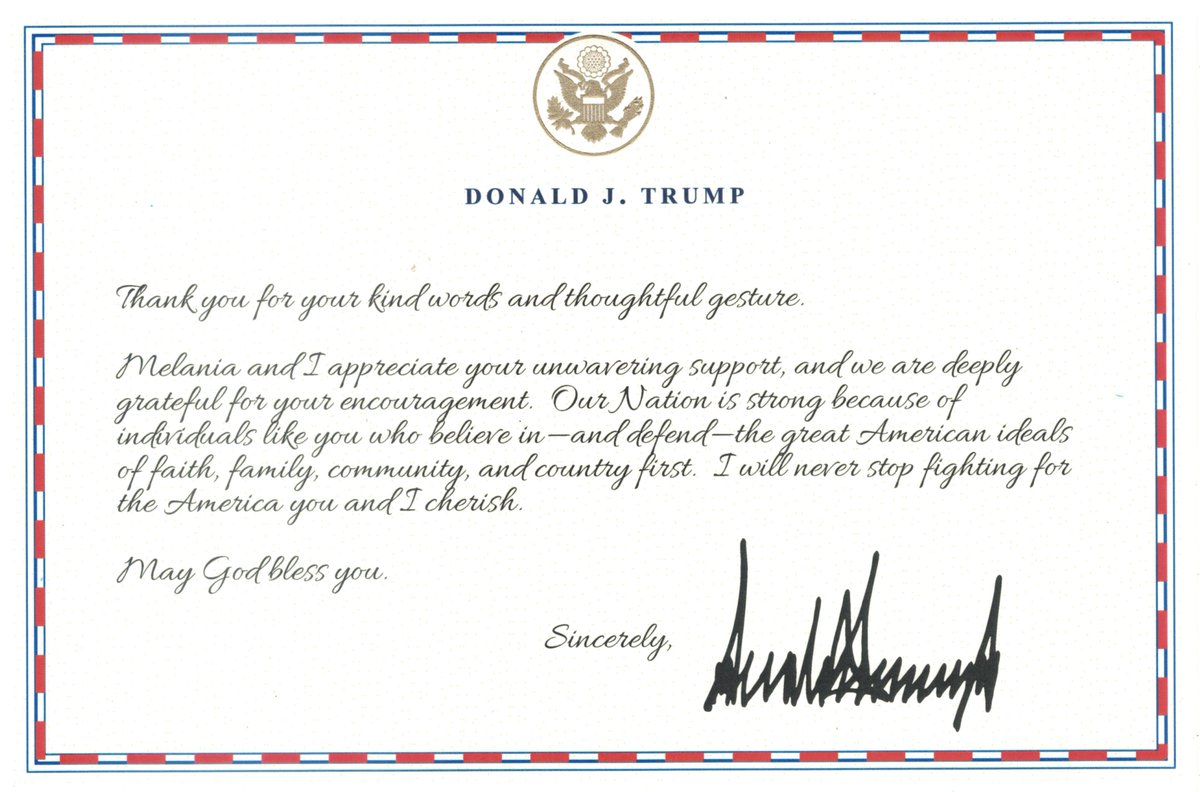 DONALD J. TRUMP
Thank you for your kind words and thoughtful gesture.
Melania and I appreciate your unwavering support, and we are deeply
grateful for your encouragement.  Our Nation is strong because of
individuals like you who believe in—and defend—the great American ideals
of faith, family, community, and country first.  I will never stop fighting for
the America you and I cherish.
May God bless you.
Sincerely,